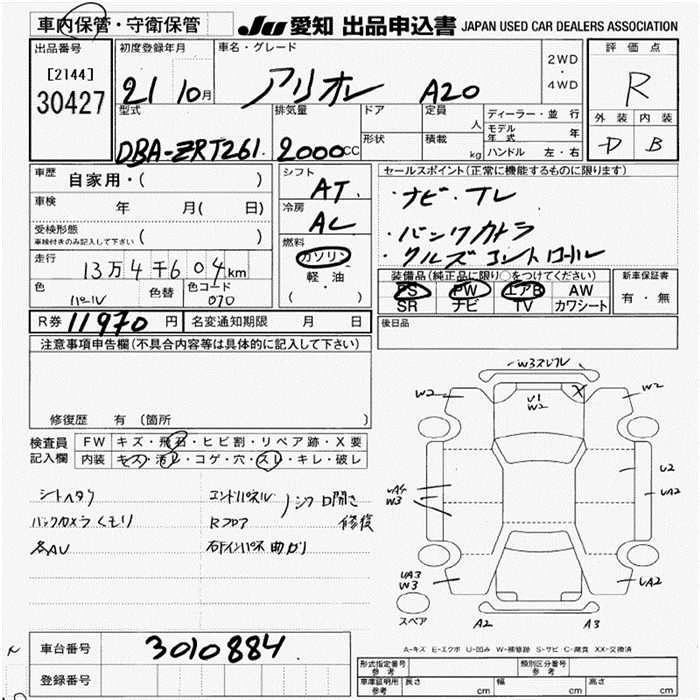 車内保管・守衛保管
JU 愛知 出品申込書 JAPAN USED CAR DEALERS ASSOCIATION
出品番号
[2144]
30427
初度登録年月
21 10月
車名・グレード
アリオン A20
2WD
・
4WD
評価点
R
外装 内装
D B
型式
DBA-ZRT261
排気量
2000CC
ドア
形状
定員
人
積載
kg
ディーラー・並行
モデル年式 年
ハンドル 左・右
車歴 自家用・( )
車検 年 月( 日)
受検形態
車検付きのみ記入して下さい ( )
走行
13万4千604km
色
パール
色替
色コード
070
シフト
AT
冷房
AC
燃料
ガソリン
軽油
( ・ )
セールスポイント(正常に機能するものに限ります)
・ナビ・TV
・バックカメラ
・クルーズコントロール
装備品(純正品に限り○をつけてください)
PS PW エアB AW
SR ナビ TV カワシート
新車保証書
有・無
R券 11970 円
名変通知期限 月 日
後日品
注意事項申告欄(不具合内容等は具体的に記入して下さい)
修復歴 有 (箇所 )
検査員 FW キズ・飛石・ヒビ割・リペア跡・X要
記入欄 内装 キズ・汚レ・コゲ・穴・スレ・キレ・破レ
シートヘタリ
バックカメラくもり
各AU
エンドパネル
Rフロア
右インパネ曲がり
修復
W3
W2
U1
W2
X
W2
UA4
W3
U2
UA2
UA3
W3
UA2
スペア
A2
A3
A-キズ E-エクボ U-凹み W-補修跡 S-サビ C-腐食 XX-交換済
車台番号 3010884
登録番号
形式指定番号
参考
類別区分番号
参考
車庫証明用
参考
長さ cm
幅 cm
高さ cm